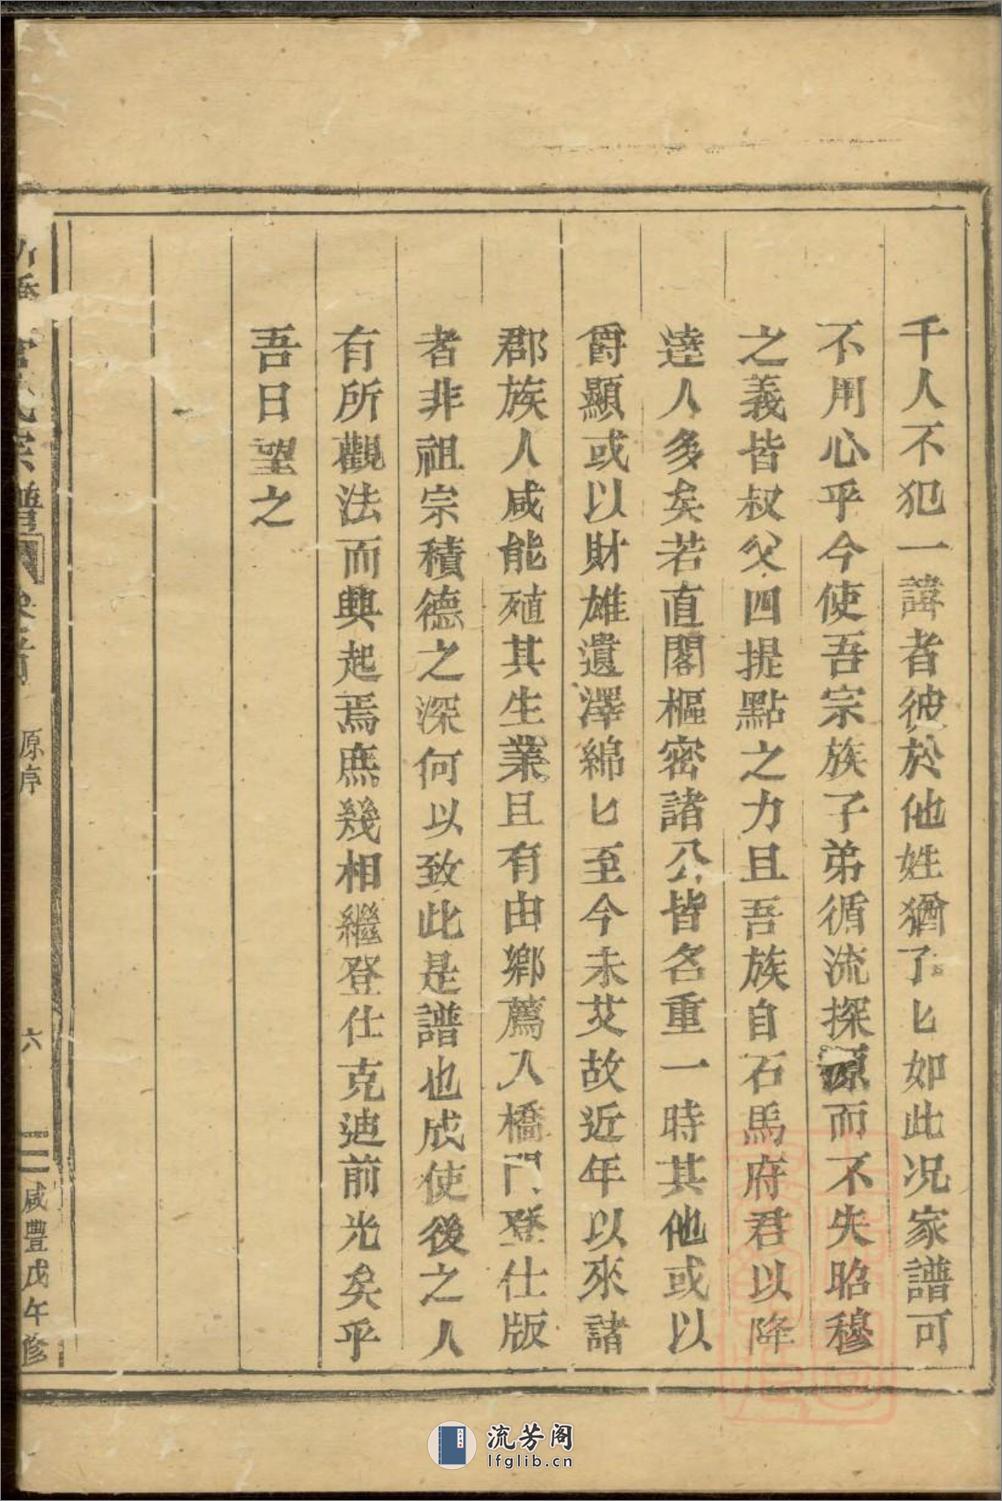 千人不犯一諱者彼於他姓猶了匕如此况家譜可
不用心乎今使吾宗族子弟循流探源而不失昭穆
之義皆叔父四提點之力且吾族自石馬府君以降
達人多矣若直閣樞密諸公皆名重一時其他或以
爵顯或以財雄遺澤綿匕至今未艾故近年以來諸
郡族人咸能殖其生業且有由鄉薦入橋門登仕版
者非祖宗積德之深何以致此是譜也成使後之人
有所觀法而興起焉庶幾相繼登仕克迪前光矣乎
吾日望之
氏宗譜
卷首
原序
六
咸豐戊午修
流芳阁
lfglib.cn